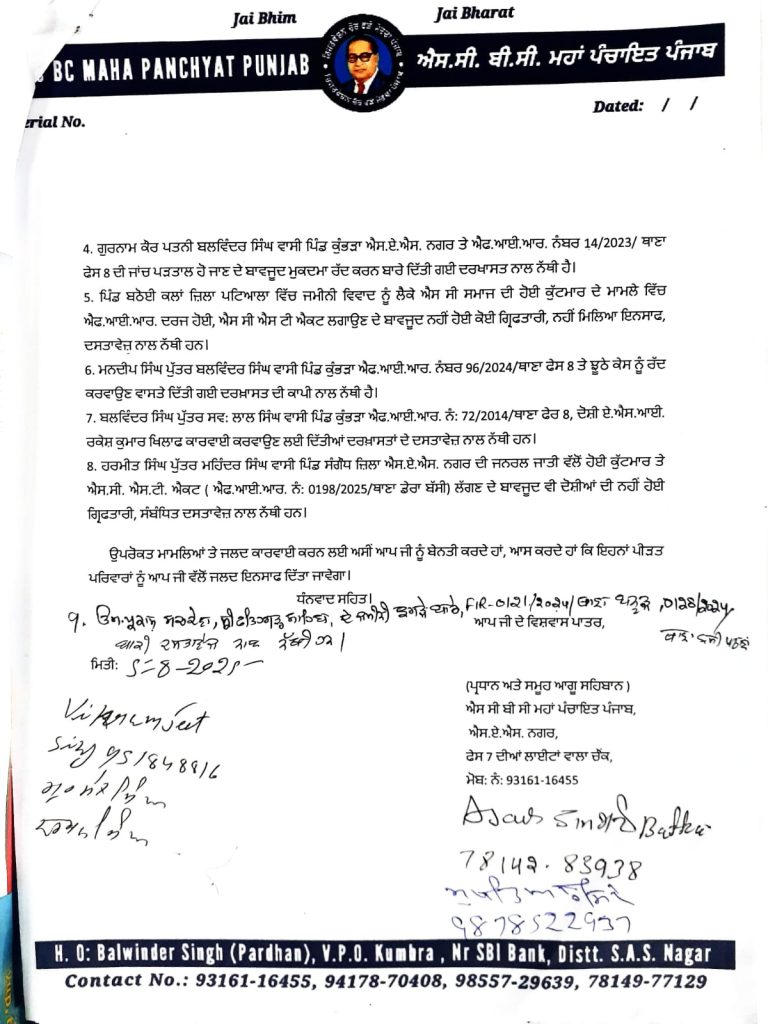 Jai Bhim
Jai Bharat
BC MAHA PANCHYAT PUNJAB
ਐਸ.ਸੀ. ਬੀ.ਸੀ. ਮਹਾਂ ਪੰਚਾਇਤ ਪੰਜਾਬ
erial No.
Dated: / /
4. ਗੁਰਨਾਮ ਕੋਰ ਪਤਨੀ ਬਲਵਿੰਦਰ ਸਿੰਘ ਵਾਸੀ ਪਿੰਡ ਕੁੰਭੜਾ ਐਸ.ਏ.ਐਸ. ਨਗਰ ਤੇ ਐਫ.ਆਈ.ਆਰ. ਨੰਬਰ 14/2023/ ਥਾਣਾ
ਫੇਸ 8 ਦੀ ਜਾਂਚ ਪੜਤਾਲ ਹੋ ਜਾਣ ਦੇ ਬਾਵਜੂਦ ਮੁਕਦਮਾ ਰੱਦ ਕਰਨ ਬਾਰੇ ਦਿੱਤੀ ਗਈ ਦਰਖਾਸਤ ਨਾਲ ਨੱਥੀ ਹੈ।
5. ਪਿੰਡ ਬਠੋਈ ਕਲਾਂ ਜ਼ਿਲਾ ਪਟਿਆਲਾ ਵਿੱਚ ਜਮੀਨੀ ਵਿਵਾਦ ਨੂੰ ਲੈਕੇ ਐਸ ਸੀ ਸਮਾਜ ਦੀ ਹੋਈ ਕੁੱਟਮਾਰ ਦੇ ਮਾਮਲੇ ਵਿੱਚ
ਐਫ.ਆਈ.ਆਰ. ਦਰਜ ਹੋਈ, ਐਸ ਸੀ ਐਸ ਟੀ ਐਕਟ ਲਗਾਉਣ ਦੇ ਬਾਵਜੂਦ ਨਹੀਂ ਹੋਈ ਕੋਈ ਗ੍ਰਿਫਤਾਰੀ, ਨਹੀਂ ਮਿਲਿਆ ਇਨਸਾਫ,
ਦਸਤਾਵੇਜ਼ ਨਾਲ ਨੱਥੀ ਹਨ।
6. ਮਨਦੀਪ ਸਿੰਘ ਪੁੱਤਰ ਬਲਵਿੰਦਰ ਸਿੰਘ ਵਾਸੀ ਪਿੰਡ ਕੁੰਭੜਾ ਐਫ.ਆਈ.ਆਰ. ਨੰਬਰ 96/2024/ਥਾਣਾ ਫੇਸ 8 ਤੇ ਝੂਠੇ ਕੇਸ ਨੂੰ ਰੱਦ
ਕਰਵਾਉਣ ਵਾਸਤੇ ਦਿੱਤੀ ਗਈ ਦਰਖ਼ਾਸਤ ਦੀ ਕਾਪੀ ਨਾਲ ਨੱਥੀ ਹੈ।
7. ਬਲਵਿੰਦਰ ਸਿੰਘ ਪੁੱਤਰ ਸਵ: ਲਾਲ ਸਿੰਘ ਵਾਸੀ ਪਿੰਡ ਕੁੰਭੜਾ ਐਫ.ਆਈ.ਆਰ. ਨੰ: 72/2014/ਥਾਣਾ ਫੇਰ 8, ਦੋਸ਼ੀ ਏ.ਐਸ.ਆਈ.
ਰਕੇਸ਼ ਕੁਮਾਰ ਖਿਲਾਫ ਕਾਰਵਾਈ ਕਰਵਾਉਣ ਲਈ ਦਿੱਤੀਆਂ ਦਰਖ਼ਾਸਤਾਂ ਦੇ ਦਸਤਾਵੇਜ਼ ਨਾਲ ਨੱਥੀ ਹਨ।
8. ਹਰਮੀਤ ਸਿੰਘ ਪੁੱਤਰ ਮਹਿੰਦਰ ਸਿੰਘ ਵਾਸੀ ਪਿੰਡ ਸੰਗੋਂਧ ਜ਼ਿਲਾ ਐਸ.ਏ.ਐਸ. ਨਗਰ ਦੀ ਜਨਰਲ ਜਾਤੀ ਵੱਲੋਂ ਹੋਈ ਕੁੱਟਮਾਰ ਤੇ
ਐਸ.ਸੀ. ਐਸ.ਟੀ. ਐਕਟ ( ਐਫ.ਆਈ.ਆਰ. ਨੰ: 0198/2025/ਥਾਣਾ ਡੇਰਾ ਬੱਸੀ) ਲੱਗਣ ਦੇ ਬਾਵਜੂਦ ਵੀ ਦੋਸ਼ੀਆਂ ਦੀ ਨਹੀਂ ਹੋਈ
ਗ੍ਰਿਫਤਾਰੀ, ਸੰਬੰਧਿਤ ਦਸਤਾਵੇਜ਼ ਨਾਲ ਨੱਥੀ ਹਨ।
ਉਪਰੋਕਤ ਮਾਮਲਿਆਂ ਤੇ ਜਲਦ ਕਾਰਵਾਈ ਕਰਨ ਲਈ ਅਸੀਂ ਆਪ ਜੀ ਨੂੰ ਬੇਨਤੀ ਕਰਦੇ ਹਾਂ, ਆਸ ਕਰਦੇ ਹਾਂ ਕਿ ਇਹਨਾਂ ਪੀੜਤ
ਪਰਿਵਾਰਾਂ ਨੂੰ ਆਪ ਜੀ ਵੱਲੋਂ ਜਲਦ ਇਨਸਾਫ ਦਿੱਤਾ ਜਾਵੇਗਾ।
ਧੰਨਵਾਦ ਸਹਿਤ।
੧. ਫਤਿਹਗੜ੍ਹ ਸਾਹਿਬ, ਦੇ ਜਮੀਨੀ ਝਗੜੇ ਬਾਰੇ, FIR-0121/2024/ ਥਾਣਾ 0128/2024/
ਆਪ ਜੀ ਦੇ ਵਿਸ਼ਵਾਸ ਪਾਤਰ,
ਦਸਤਾਵੇਜ ਨਾਲ ਨੱਥੀ ਹਨ।
ਮਿਤੀ: 5-8-2025
(ਪ੍ਰਧਾਨ ਅਤੇ ਸਮੂਹ ਆਗੂ ਸਹਿਬਾਨ )
ਐਸ ਸੀ ਬੀ ਸੀ ਮਹਾਂ ਪੰਚਾਇਤ ਪੰਜਾਬ,
ਐਸ.ਏ.ਐਸ. ਨਗਰ,
ਫੇਸ 7 ਦੀਆਂ ਲਾਈਟਾਂ ਵਾਲਾ ਚੌਂਕ,
ਮੋਬ: ਨੰ: 93161-16455
Vikramjeet
Singh 951848816
ਸਿੰਘ
ਸਿੰਘ
Singh
78142-83938
9878522937
H. O: Balwinder Singh (Pardhan), V.P.O. Kumbra , Nr SBI Bank, Distt. S.A.S. Nagar
Contact No.: 93161-16455, 94178-70408, 98557-29639, 78149-77129